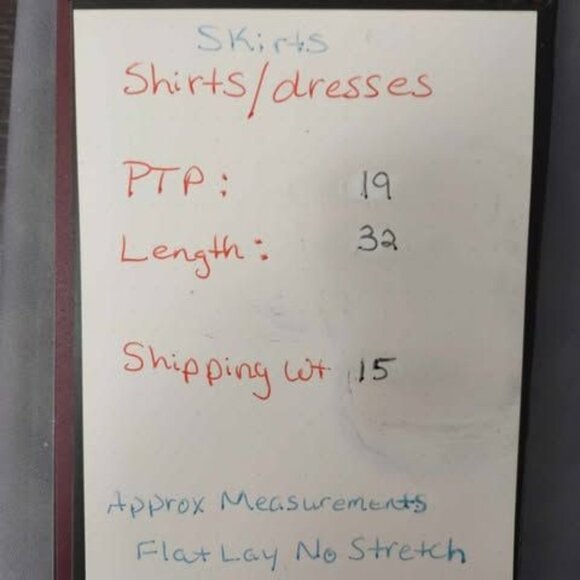 Skirts
Shirts/dresses
PTP: 19
Length: 32
Shipping Wt 15
Approx Measurements
Flat Lay No Stretch